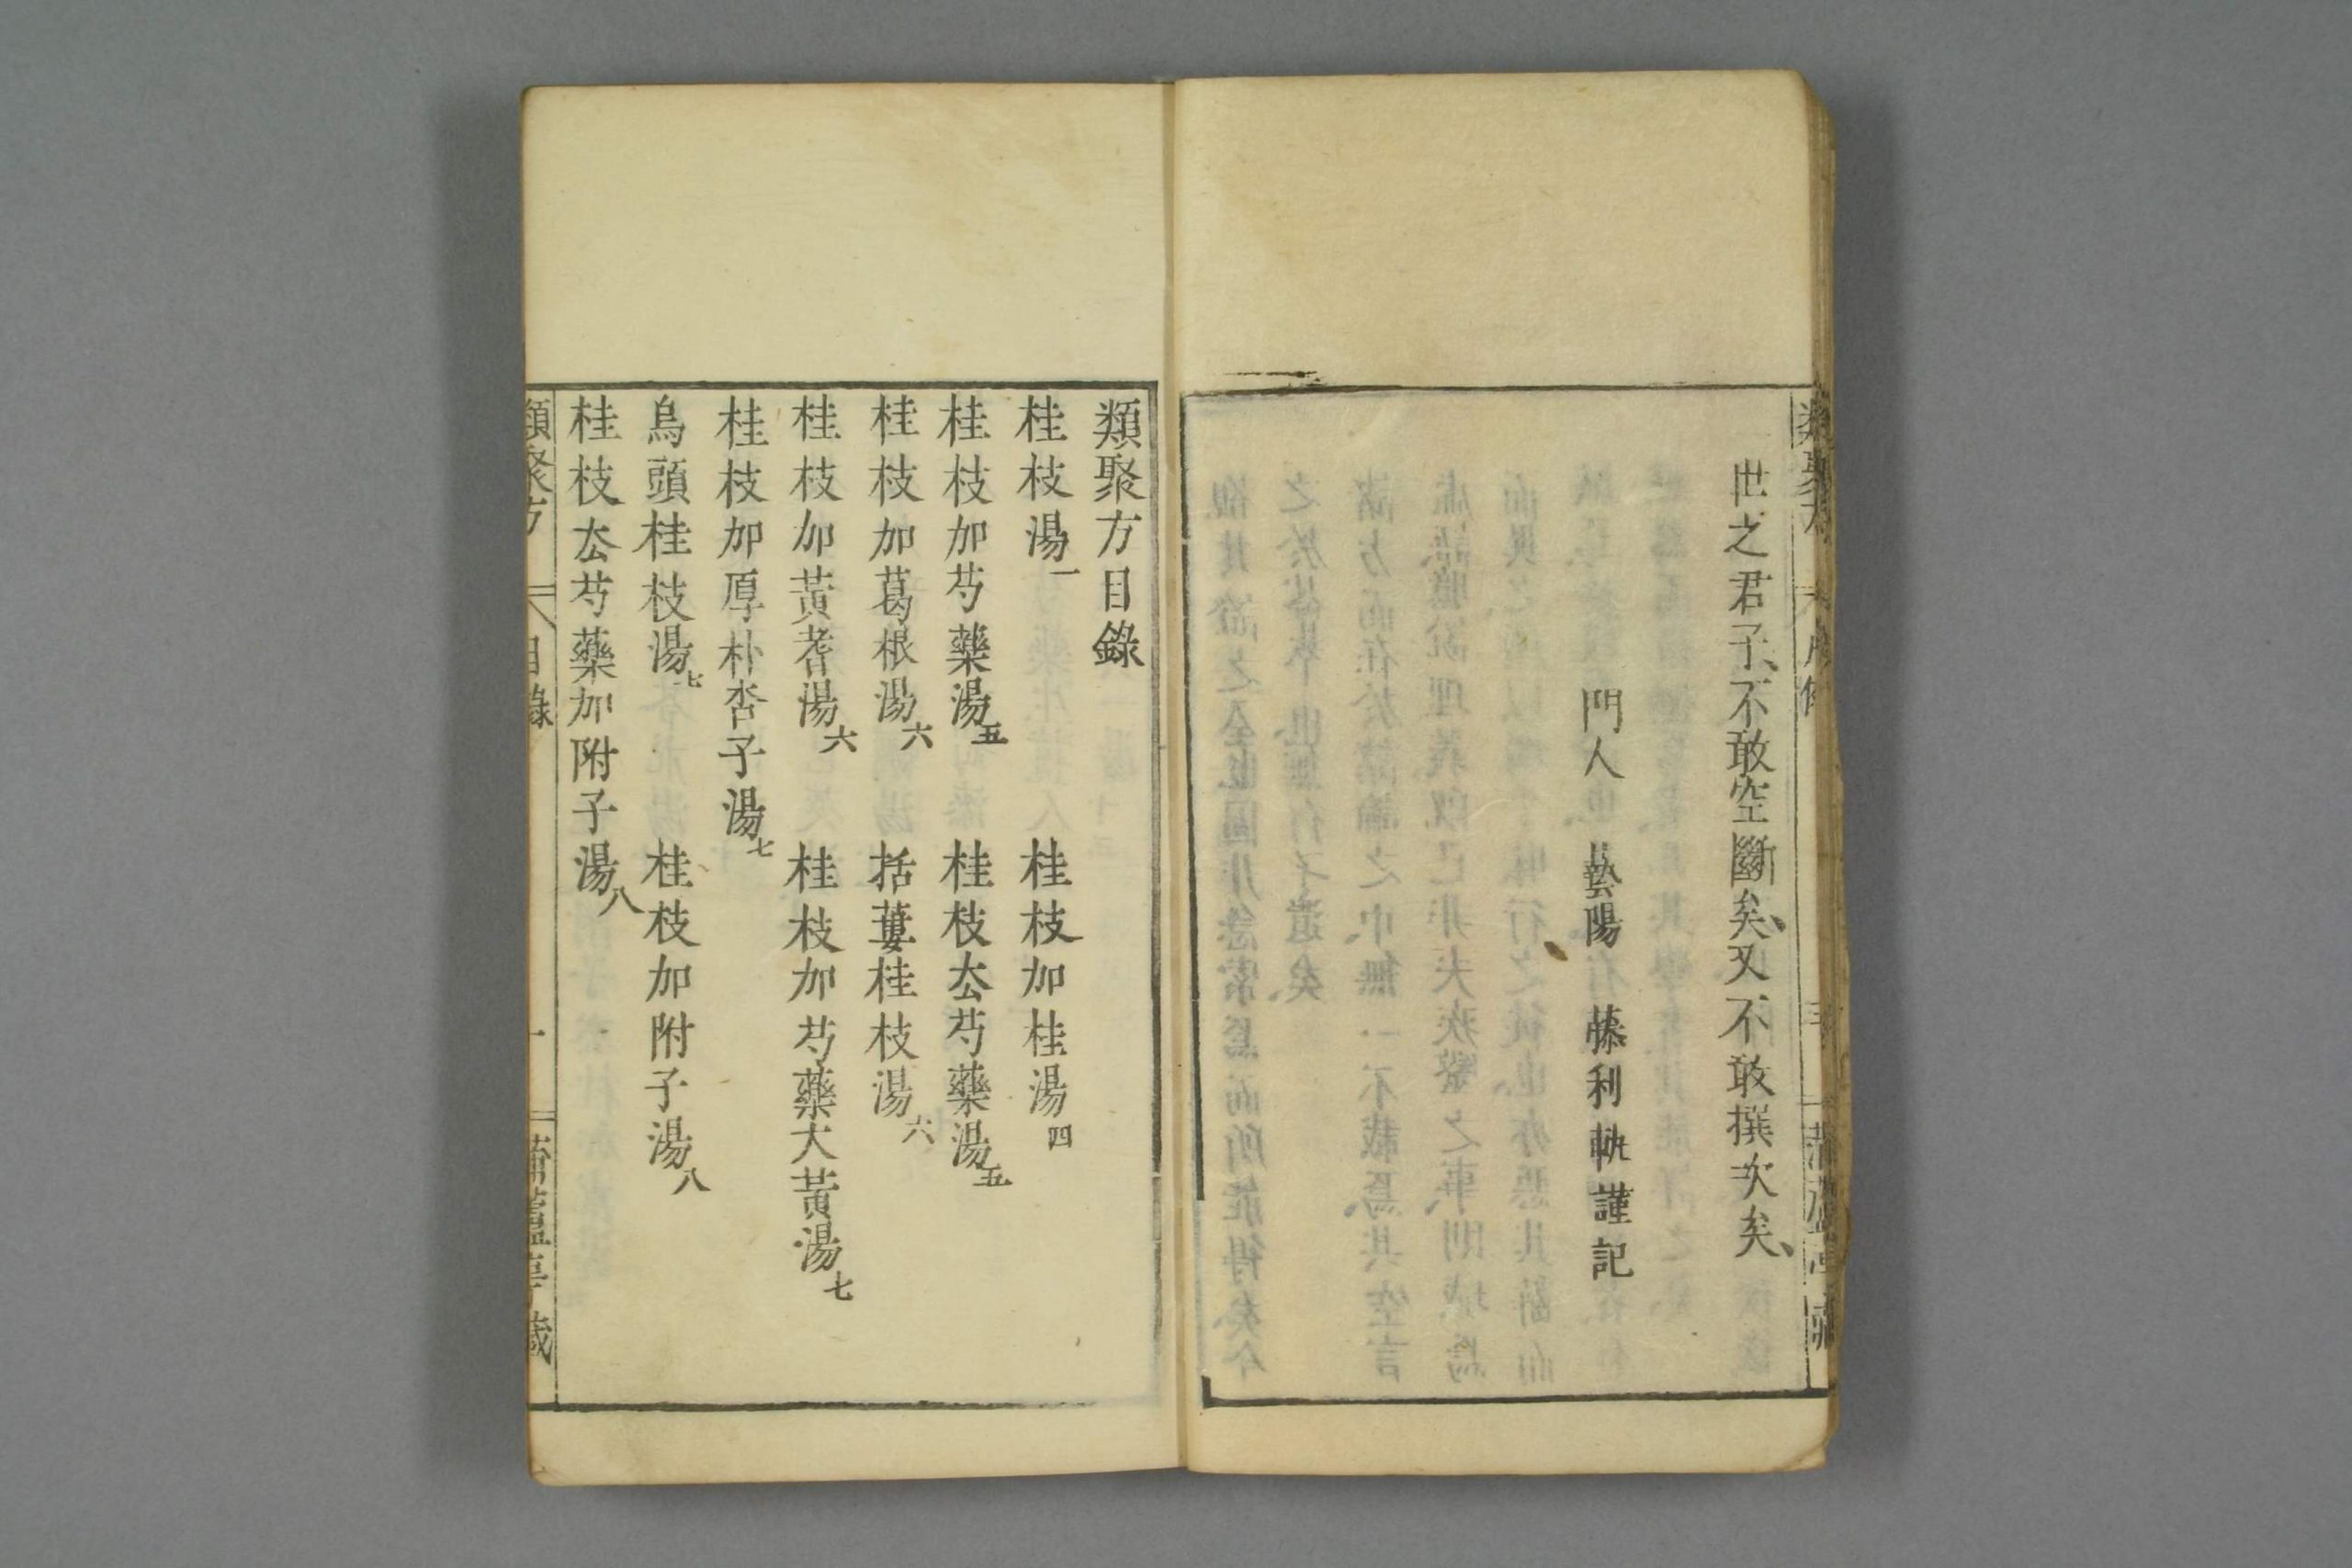 世之君子、不敢空斷矣、又不敢撰次矣、
門人 藝陽 藤利軏謹記
類聚方目錄
桂枝湯一 桂枝加桂湯四
桂枝加芍藥湯五 桂枝厺芍藥湯五
桂枝加葛根湯六 括蔞桂枝湯六
桂枝加黃耆湯六 桂枝加芍藥大黃湯七
桂枝加厚朴杏子湯七
烏頭桂枝湯七 桂枝加附子湯八
桂枝厺芍藥加附子湯八
類聚方 目錄 一 蒲蘆亭藏